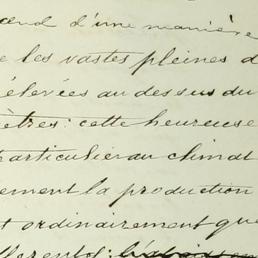 cend d'une manière
e les vastes pleines d
élevées au dessus du
ètres: cette heureuse
articulier au climat
ement la production
t ordinairement que
fferentes: